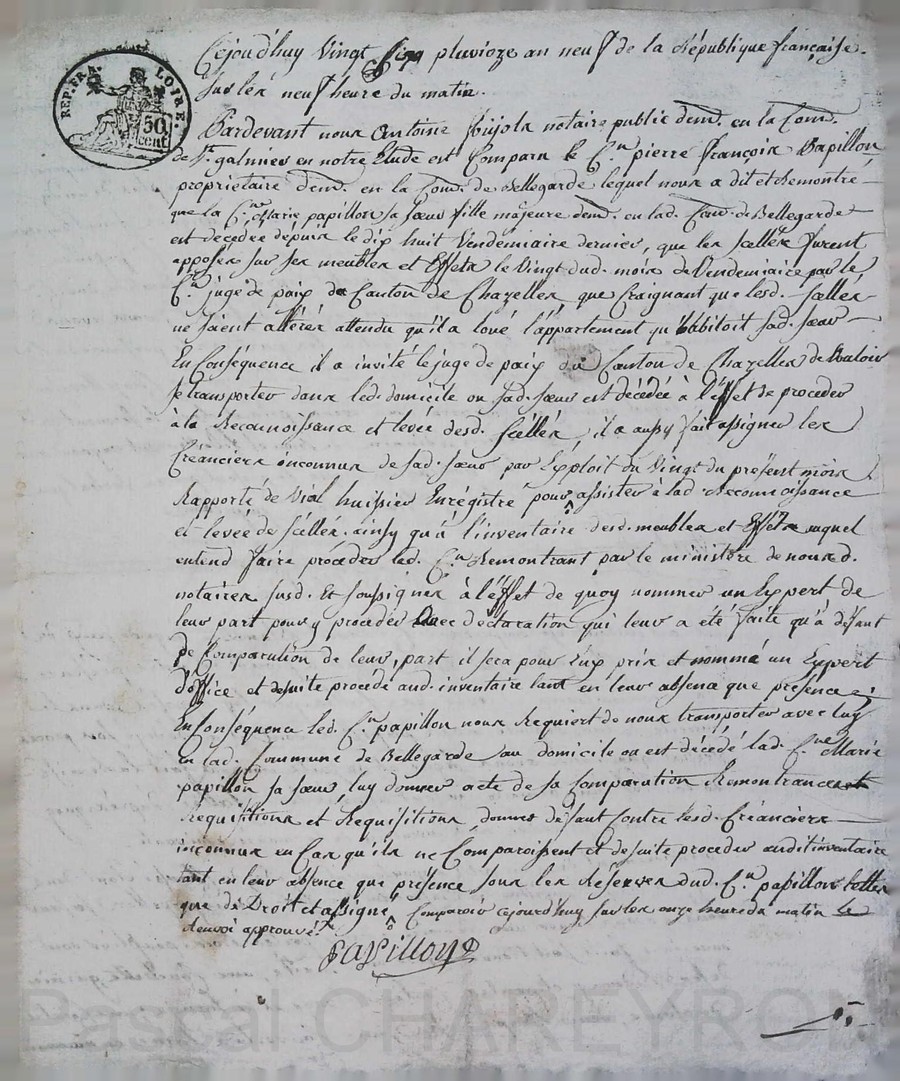 Cejourd'huy Vingt Six pluvioze an neuf de la République française.
Sur les neuf heure du matin.
REP. FRA. LOIRE.
50 cent
Pardevant nous Antoine Poujols notaire public dem.t en la Com.
de S.t galmier en notre Etude est Comparu le C.n pierre françois Papillon
propriétaire dem.t en la Com. de Bellegarde lequel nous a dit et Remontré
que la C.ne Marie papillon sa sœur fille majeure dem.t en lad. Com. de Bellegarde
est décédée dépuis le dix huit Vendémiaire dernier, que les scellés furent
apposés sur ses meubles et Effets le Vingt dud. mois de Vendemiaire par le
C.n juge de paix du Canton de Chazelles que Craignant que lesd. scellés
ne soient altérés attendu qu'il a loué l'appartement qu'habitoit sad. sœur
En Conséquence il a invité le juge de paix du Canton de Chazelles de Vouloir
se transporter dans led. domicile ou sad. sœur est décédée à l'effet de proceder
à la Reconoissance et levée desd. scellés, il a aussy fait assigner les
Créanciers inconnus de sad. sœur par Exploit du Vingt du présent mois
Rapporté de Vial huissier Enrégistré pour assister à lad. Reconnoissance
et levée de scellés. ainsy qu'à l'inventaire desd. meubles et Effets auquel
entend faire procéder led. C.n Remontrant par le ministère de nous d.
notaires susd. Et soussignés à l'éffet de quoy nommer un Expert de
leur part pour y procéder avec déclaration qui leur a été faite qu'à défaut
de Comparution de leur, part il sera pour Eux pris et nommé un Expert
d'office et desuite procédé aud. inventaire tant en leur absence que présence;
En Conséquence led. C.n papillon nous Requiert de nous transporter avec luy
en lad. Commune de Bellegarde au domicile ou est décédé lad. C.ne Marie
papillon sa sœur, luy donner acte de sa Comparution Remontrances
Requisitions et Requisitions, donner défaut Contre lesd. Créanciers
inconnus en Cas qu'ils ne Comparoissent et de suite proceder audit inventaire
tant en leur absence que présence sous les Réserves dud. C.n papillon telles
que de Droit et assigné à Comparoir cejourd'huy sur les onze heures du matin
renvoi approuvé.
Papillon
Pascal CHAREYRON